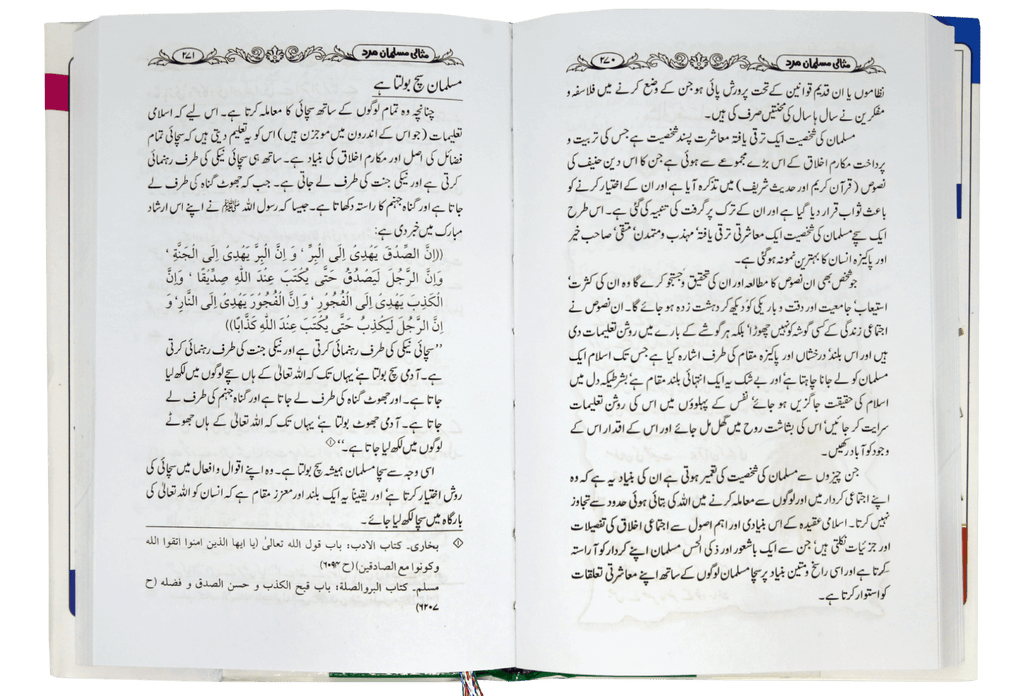 مثالی مسلمان مرد ۲۷۰
نظاموں یا ان قدیم قوانین کے تحت پرورش پائی ہو جن کے وضع کرنے میں فلاسفہ و
مفکرین نے سال ہا سال کی محنتیں صرف کی ہیں۔
مسلمان کی شخصیت ایک ترقی یافتہ معاشرت پسند شخصیت ہے جس کی تربیت و
پرداخت مکارم اخلاق کے اس بڑے مجموعے سے ہوئی ہے جن کا اس دین حنیف کی
نصوص (قرآن کریم اور حدیث شریف) میں تذکرہ آیا ہے اور ان کے اختیار کرنے کو
باعث ثواب قرار دیا گیا ہے اور ان کے ترک پر گرفت کی تنبیہ کی گئی ہے۔ اس طرح
ایک سچے مسلمان کی شخصیت ایک معاشرتی ترقی یافتہ‘ مہذب و متمدن‘ متقی‘ صاحب خیر
اور پاکیزہ انسان کا بہترین نمونہ ہو گئی ہے۔
جو شخص بھی ان نصوص کا مطالعہ اور ان کی تحقیق و جستجو کرے گا وہ ان کی کثرت‘
استیعاب‘ جامعیت اور دقت و باریکی کو دیکھ کر دہشت زدہ ہو جائے گا۔ ان نصوص نے
اجتماعی زندگی کے کسی گوشہ کو نہیں چھوڑا‘ بلکہ ہر گوشے کے بارے میں روشن تعلیمات دی
ہیں اور اس بلند‘ درخشاں اور پاکیزہ مقام کی طرف اشارہ کیا ہے جس تک اسلام ایک
مسلمان کو لے جانا چاہتا ہے‘ اور بے شک یہ ایک انتہائی بلند مقام ہے‘ بشرطیکہ دل میں
اسلام کی حقیقت جاگزیں ہو جائے‘ نفس کے پہلوؤں میں اس کی روشن تعلیمات
سرایت کر جائیں‘ اس کی بشاشت روح میں گھل مل جائے اور اس کے اقدار اس کے
وجود کو آباد رکھیں۔
جن چیزوں سے مسلمان کی شخصیت کی تعمیر ہوتی ہے ان کی بنیاد یہ ہے کہ وہ
اپنے اجتماعی کردار میں اور لوگوں سے معاملہ کرنے میں اللہ کی بتائی ہوئی حدود سے تجاوز
نہیں کرتا۔ اسلامی عقیدہ کے اس بنیادی اور اہم اصول سے اجتماعی اخلاق کی تفصیلات
اور جزئیات نکلتی ہیں‘ جن سے ایک باشعور اور ذکی الحس مسلمان اپنے کردار کو آراستہ
کرتا ہے اور اسی راسخ و متین بنیاد پر سچا مسلمان لوگوں کے ساتھ اپنے معاشرتی تعلقات
کو استوار کرتا ہے۔
مثالی مسلمان مرد ۲۷۱
مسلمان سچ بولتا ہے
چنانچہ وہ تمام لوگوں کے ساتھ سچائی کا معاملہ کرتا ہے۔ اس لیے کہ اسلامی
تعلیمات (جو اس کے اندرون میں موجزن ہیں) اس کو یہ تعلیم دیتی ہیں کہ سچائی تمام
فضائل کی اصل اور مکارم اخلاق کی بنیاد ہے۔ ساتھ ہی سچائی نیکی کی طرف رہنمائی
کرتی ہے اور نیکی جنت کی طرف لے جاتی ہے۔ جب کہ جھوٹ گناہ کی طرف لے
جاتا ہے اور گناہ جہنم کا راستہ دکھاتا ہے۔ جیسا کہ رسول اللہ ﷺ نے اپنے اس ارشاد
مبارک میں خبر دی ہے:
((إِنَّ الصِّدْقَ يَهْدِى إِلَى الْبِرِّ ‘ وَ إِنَّ الْبِرَّ يَهْدِى إِلَى الْجَنَّةِ ‘
وَإِنَّ الرَّجُلَ لَيَصْدُقُ حَتَّى يُكْتَبَ عِنْدَ اللّٰهِ صِدِّيْقًا ‘ وَإِنَّ
الْكَذِبَ يَهْدِى إِلَى الْفُجُورِ ‘ وَ إِنَّ الْفُجُوْرَ يَهْدِى إِلَى النَّارِ‘ وَ
إِنَّ الرَّجُلَ لَيَكْذِبُ حَتَّى يُكْتَبَ عِنْدَ اللّٰهِ كَذَّابًا))
’’سچائی نیکی کی طرف رہنمائی کرتی ہے اور نیکی جنت کی طرف رہنمائی کرتی
ہے۔ آدمی سچ بولتا ہے‘ یہاں تک کہ اللہ تعالیٰ کے ہاں سچے لوگوں میں لکھ لیا
جاتا ہے۔ اور جھوٹ گناہ کی طرف لے جاتا ہے اور گناہ جہنم کی طرف لے
جاتا ہے۔ آدمی جھوٹ بولتا ہے‘ یہاں تک کہ اللہ تعالیٰ کے ہاں جھوٹے
لوگوں میں لکھ لیا جاتا ہے۔‘‘ ①
اسی وجہ سے سچا مسلمان ہمیشہ سچ بولتا ہے۔ وہ اپنے اقوال و افعال میں سچائی کی
روش اختیار کرتا ہے‘ اور یقیناً یہ ایک بلند اور معزز مقام ہے کہ انسان کو اللہ تعالیٰ کی
بارگاہ میں سچا لکھ لیا جائے۔
① بخاری۔ کتاب الادب: باب قول الله تعالیٰ (یا ایها الذین امنوا اتقوا الله
وکونوا مع الصادقین) (ح ۶۰۹۴)
مسلم۔ کتاب البروالصلة: باب قبح الکذب و حسن الصدق و فضله (ح
۲۶۰۷)